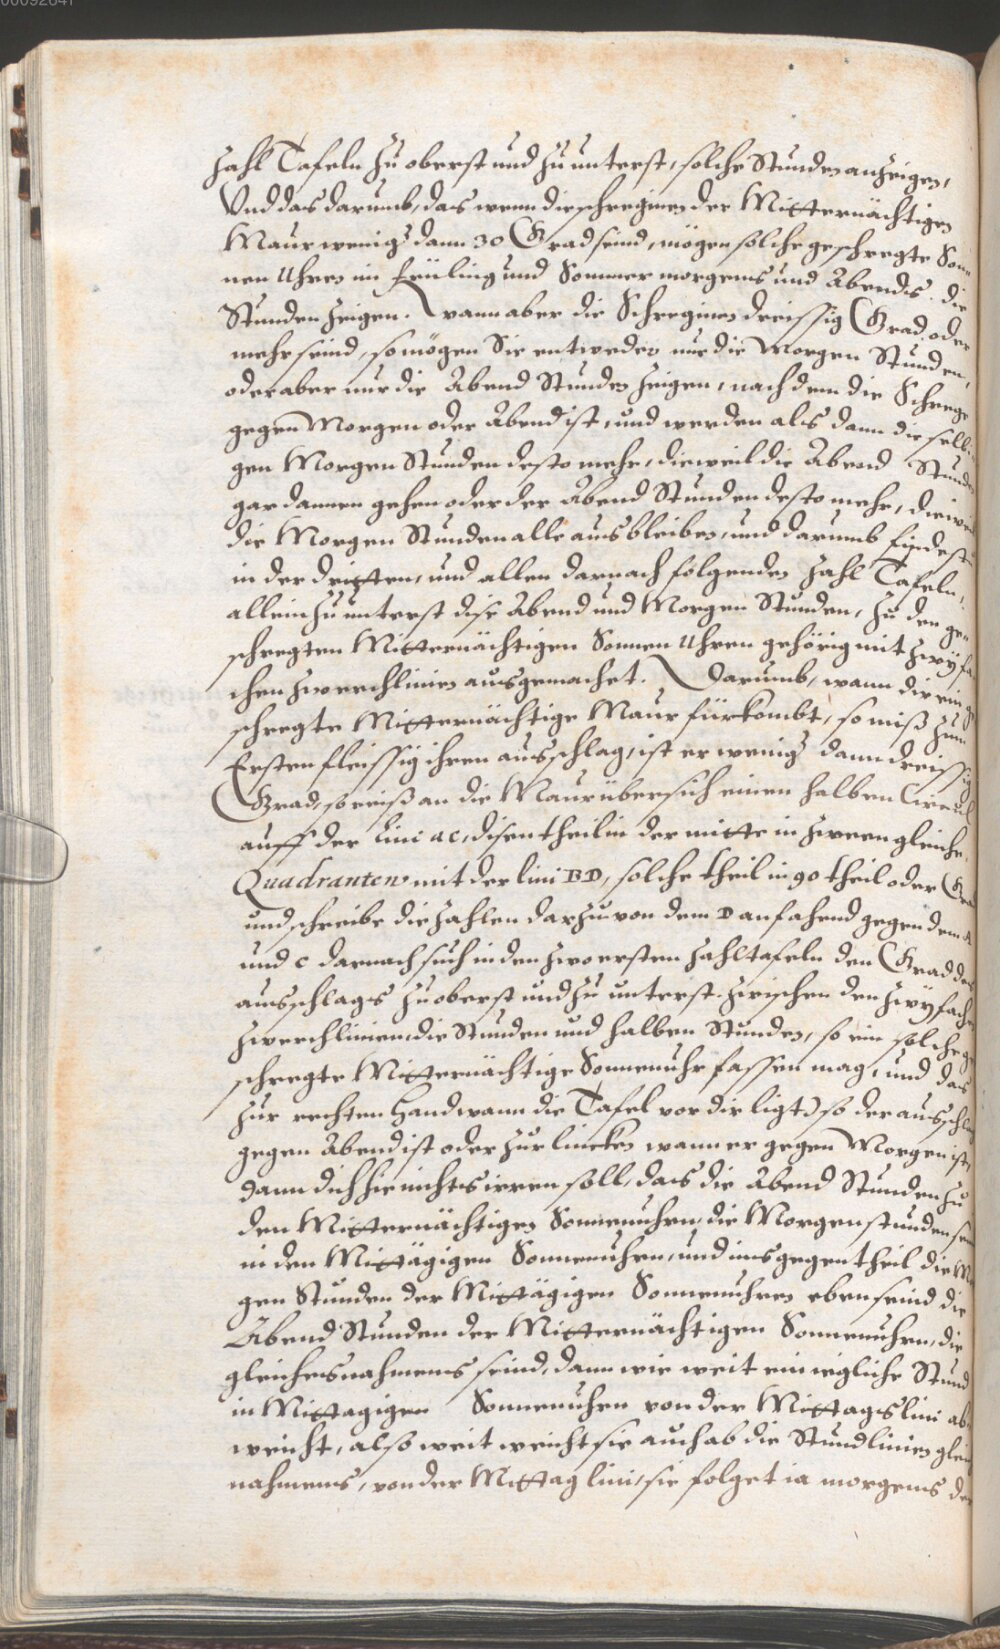 00092641
Zahl Tafeln zu oberst und zu unterst, solche Stunden anzeigen,
Und das darumb, das wenn die schreginen der Mitternächtigen
Maur wenigr dann 30 Grad seind, mögen solche geschregte Son
nen Uhren im früling und Sommer morgens und Abends die
Stunden zeigen. Wann aber die Schreginen dreissig Grad oder
mehr seind, so mögen Sie entweder nur die Morgen Stunden,
oder aber nur die Abend Stunden zeigen, nach dem die Schrege
gegen Morgen oder Abend ist, und werden als dann die selbi
gen Morgen Stunden desto mehr, dieweil die Abend Stunden
gar dannen gehen oder der Abend Stunden desto mehr, dieweil
die Morgen Stunden alle ausbleiben, und darumb findestu
in der dritten, und allen darnach folgenden Zahl Tafeln,
allein zu unterst dise Abend und Morgen Stunden, zu den ge
schregten Mitternächtigen Sonnen Uhren gehörig mit zwyfa
chen zwerchlinien ausgemachet. Darumb, wann dir ein ge
schregte Mitternächtige Maur fürkombt, so miß zum
Ersten fleissig ihren ausschlag, ist er wenigr dann dreissig
Grad, so reiß an die Maur übersich einen halben Circul
auff der Lini ac, disen theil in der mitte in zween gleiche
Quadranten mit der lini BD, solche theil in 90 theil oder Grad
und schreibe die Zahlen darzu von dem D anfahend gegen dem A
und C darnach such in den zwo ersten Zahltafeln den Grad des
ausschlags zu oberst und zu unterst. zwischen den zwyfachen
zwerchlinien die Stunden und halben Stunden, so ein solche ge
schregte Mitternächtige Sonnenuhr fassen mag, und das
zur rechten Hand wann die Tafel vor dir ligt) so der ausschlag
gegen Abend ist oder zur lincken wann er gegen Morgen ist,
Dann dich hie nichts irren soll, das die Abend Stunden zu
den Mitternächtigen Sonnenuhren, die Morgenstunden sein
in den Mittägigen Sonnenuhren, und im gegentheil die Mor
gen Stunden der Mittägigen Sonnenuhren eben seind die
Abend Stunden der Mitternächtigen Sonnenuhren, die
gleichsnahmens seind, dann wie weit ein iegliche Stund
in Mittagigen Sonnenuhren von der Mittagslini ab
weicht, also weit weicht sie auch ab die Stundlinien gleich
nahmens, von der Mittag lini, sie folget ia morgens der